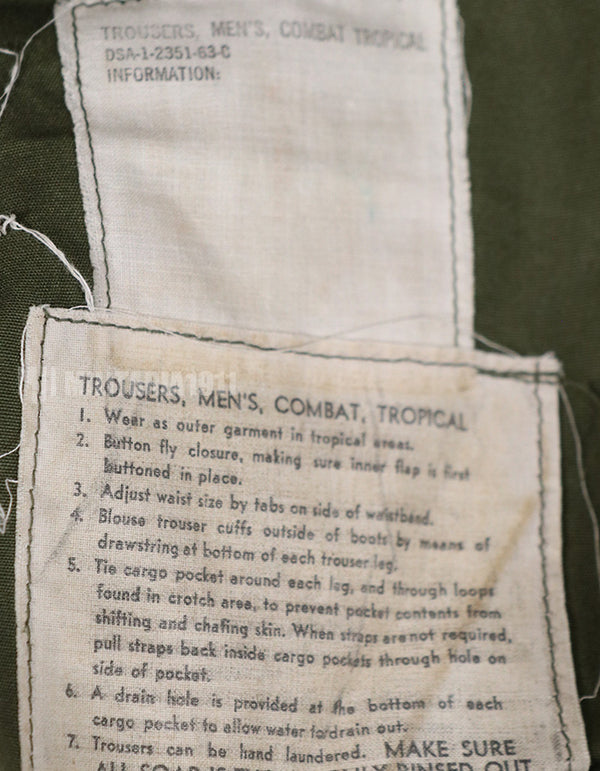 TROUSERS, MEN'S, COMBAT TROPICAL
DSA-1-2351-63-C
INFORMATION:
TROUSERS, MEN'S, COMBAT, TROPICAL
1. Wear as outer garment in tropical areas.
2. Button fly closure, making sure inner flap is first
buttoned in place.
3. Adjust waist size by tabs on side of waistband.
4. Blouse trouser cuffs outside of boots by means of
drawstring at bottom of each trouser leg.
5. Tie cargo pocket around each leg, and through loops
found in crotch area, to prevent pocket contents from
shifting and chafing skin. When straps are not required,
pull straps back inside cargo pockets through hole on
side of pocket.
6. A drain hole is provided at the bottom of each
cargo pocket to allow water to drain out.
7. Trousers can be hand laundered. MAKE SURE
ALL SOAP IS RINSED OUT